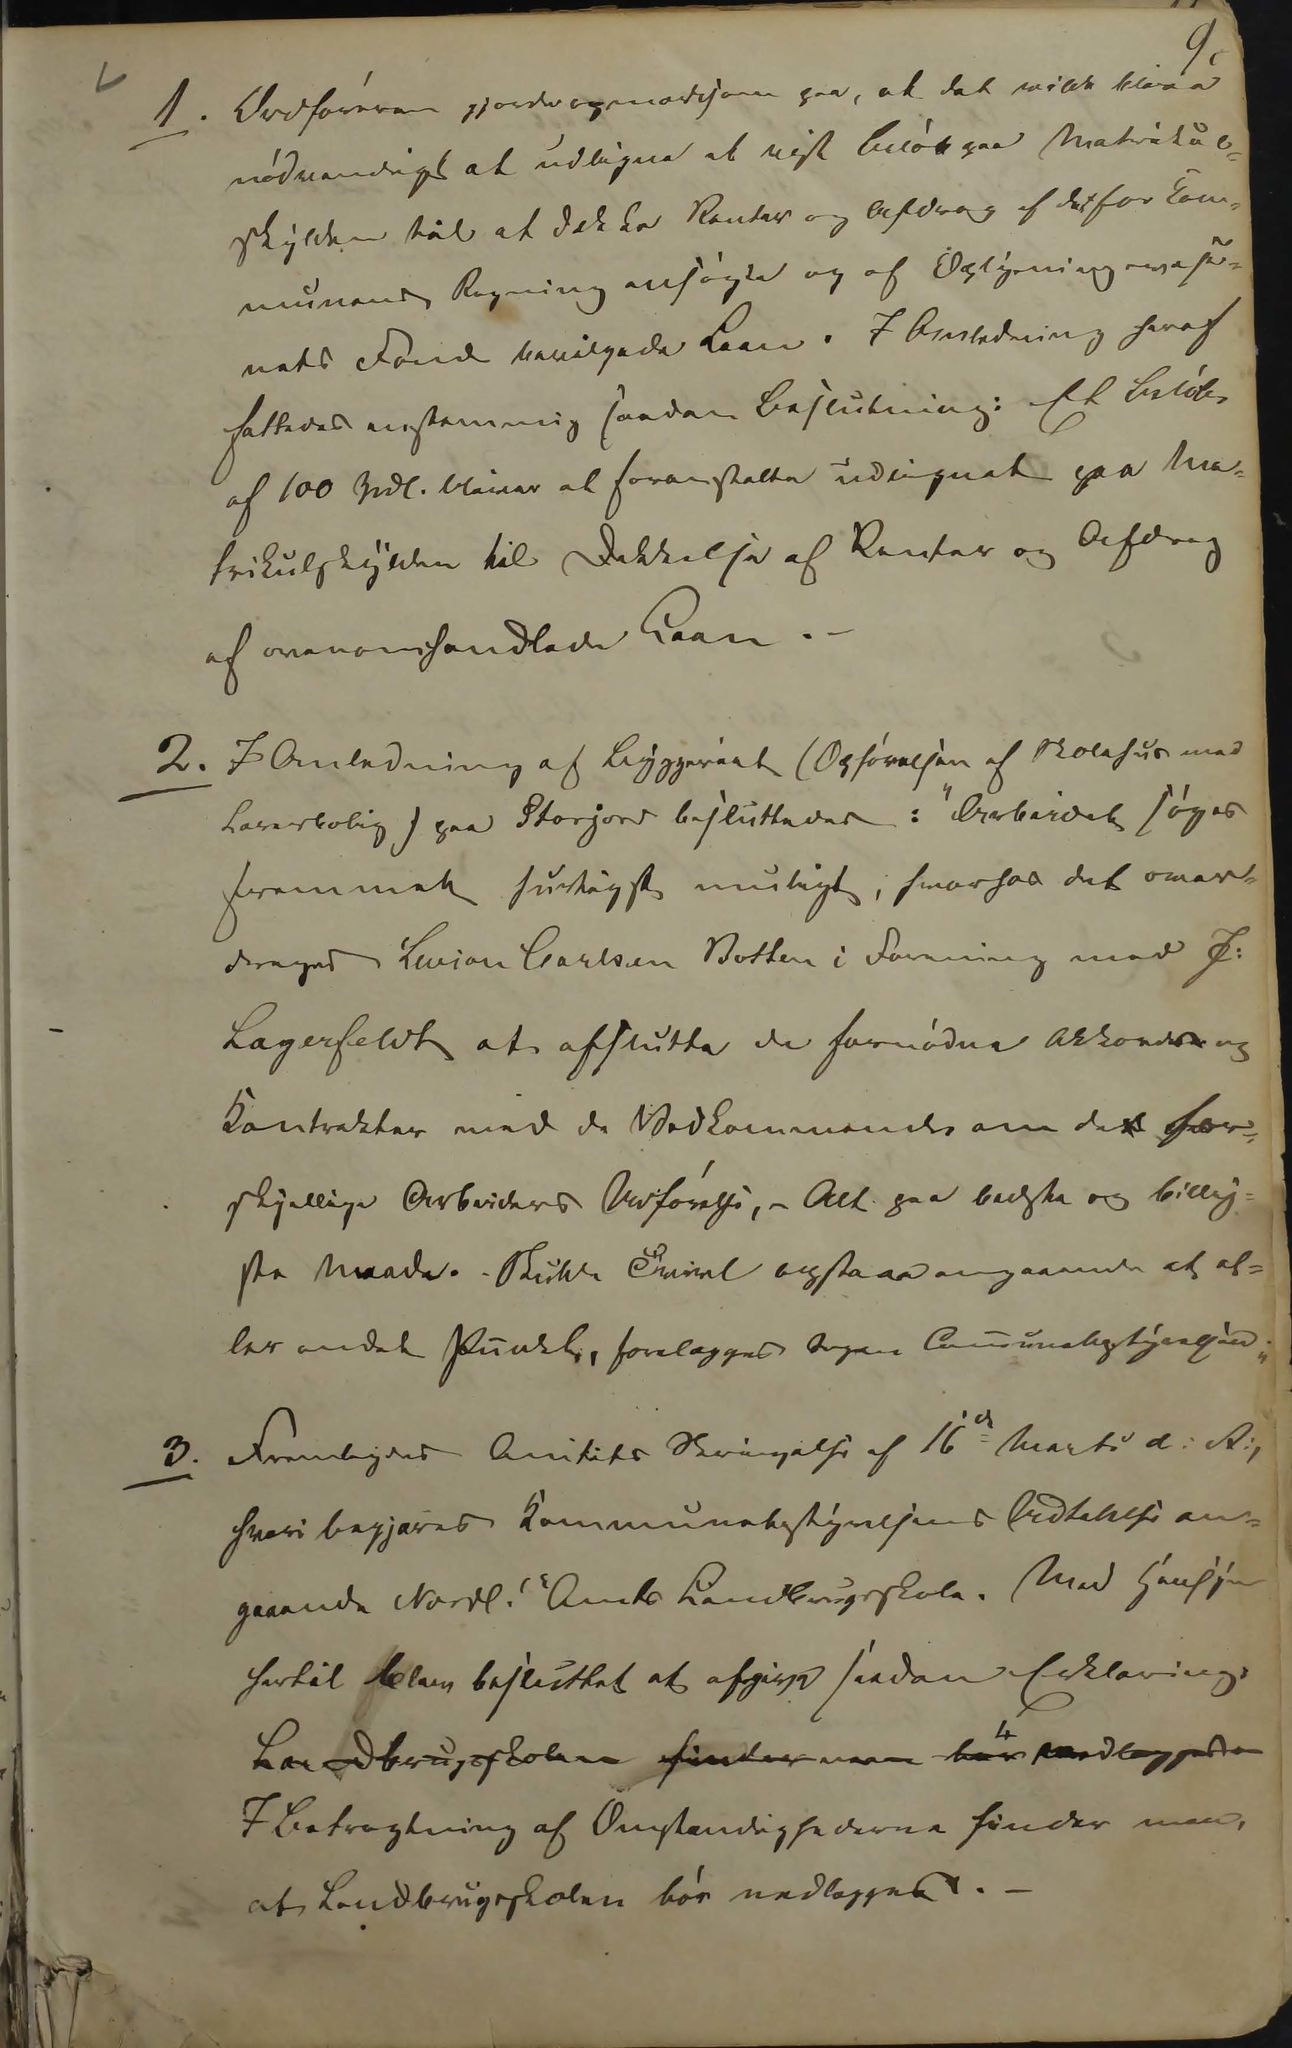 9.
1. Ordføreren gjorde opmærksom paa, at det vilde blive
nødvendigt at udligne et vist Beløb paa Matrikul-
skylden til at dække Renter og Afdrag af det for Kom-
munens Regning ansøgte og af Oplysningsvæse-
nets Fond bevilgede Laan. I Anledning heraf
fattedes enstemmig saadan Beslutning: Et Beløb
af 100 Spdl. bliver at foranstalte udlignet paa Ma-
trikulskylden til Dækkelse af Renter og Afdrag
af ovenomhandlede Laan. -
2. I Anledning af Byggeriet (Opførelsen af Skolehus med
Lærerbolig) paa Storjord besluttedes: "Arbeidet søges
fremmet hurtigst muligt, hvorhos det over-
drages Carlsen Botten i Forening med J:
Lagerfeldt at afslutte de fornødne Akkorder og
Kontrakter med de Vedkommende om de for-
skjellige Arbeiders Udførelse, - Alt paa bedste og billig-
ste Maade. - Skulde Tvivl opstaa angaaende et el-
ler andet Punkt, forelægges Communebestyrelsen"
3. Fremlagdes Amtets Skrivelse af 16de Marts d: A:,
hvori begjæres Kommunebestyrelsens Udtalelse an-
gaaende Nordl. Amts Landbrugsskole. Med Hensyn
hertil blev besluttet at afgive saadan Erklæring:
Landbrugsskolen finder man bør nedlægges
I Betragtning af Omstændighederne finder man,
at Landbrugsskolen bør nedlægges. -